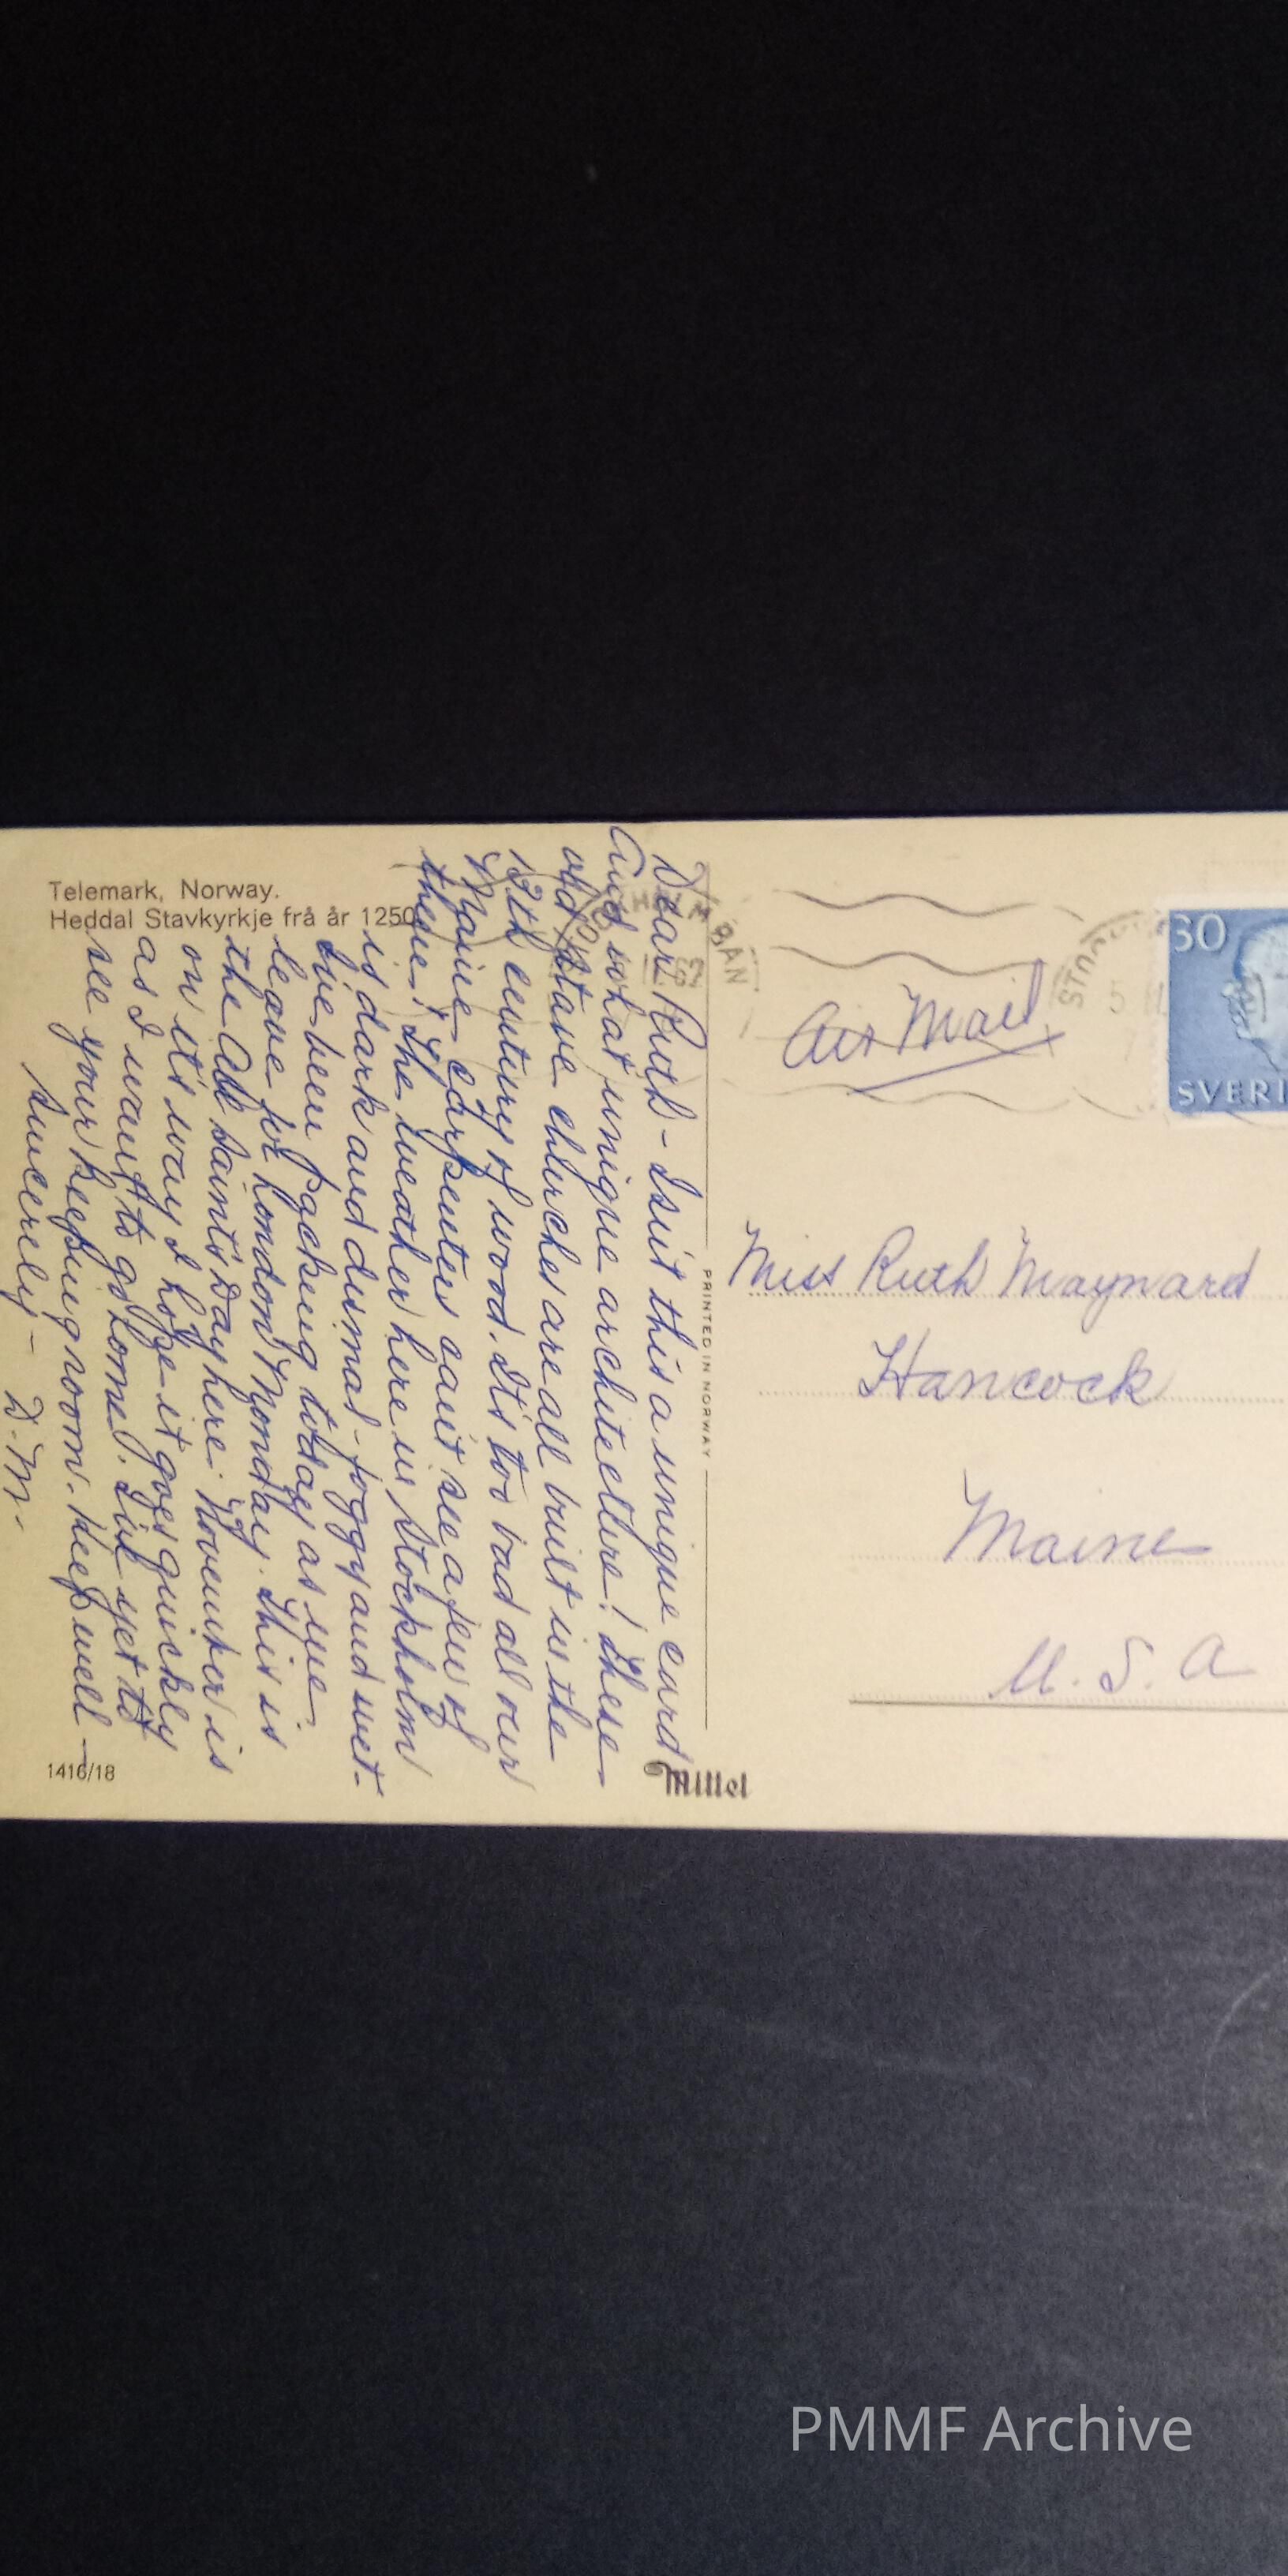 Telemark, Norway.
Heddal Stavkyrkje frå år 1250
Dear Ruth - Isn't this a unique card
And what unique architecture! These
old stave churches are all built in the
12th century of wood. It's too bad all our
Maine carpenters can't see a few of
them! The weather here in Stockholm
is dark and dismal - foggy and wet.
I've been packing today as we
leave for London Monday. This is
the All Saints Day here. November is
on it's way I hope it goes quickly
as I want to go home. I've yet to
see your keeping room. Keep well -
Sincerely - D. M.
1416/18
PRINTED IN NORWAY
Mittet
30
SVERI
Air Mail
Miss Ruth Maynard
Hancock
Maine
U. S. A
PMMF Archive